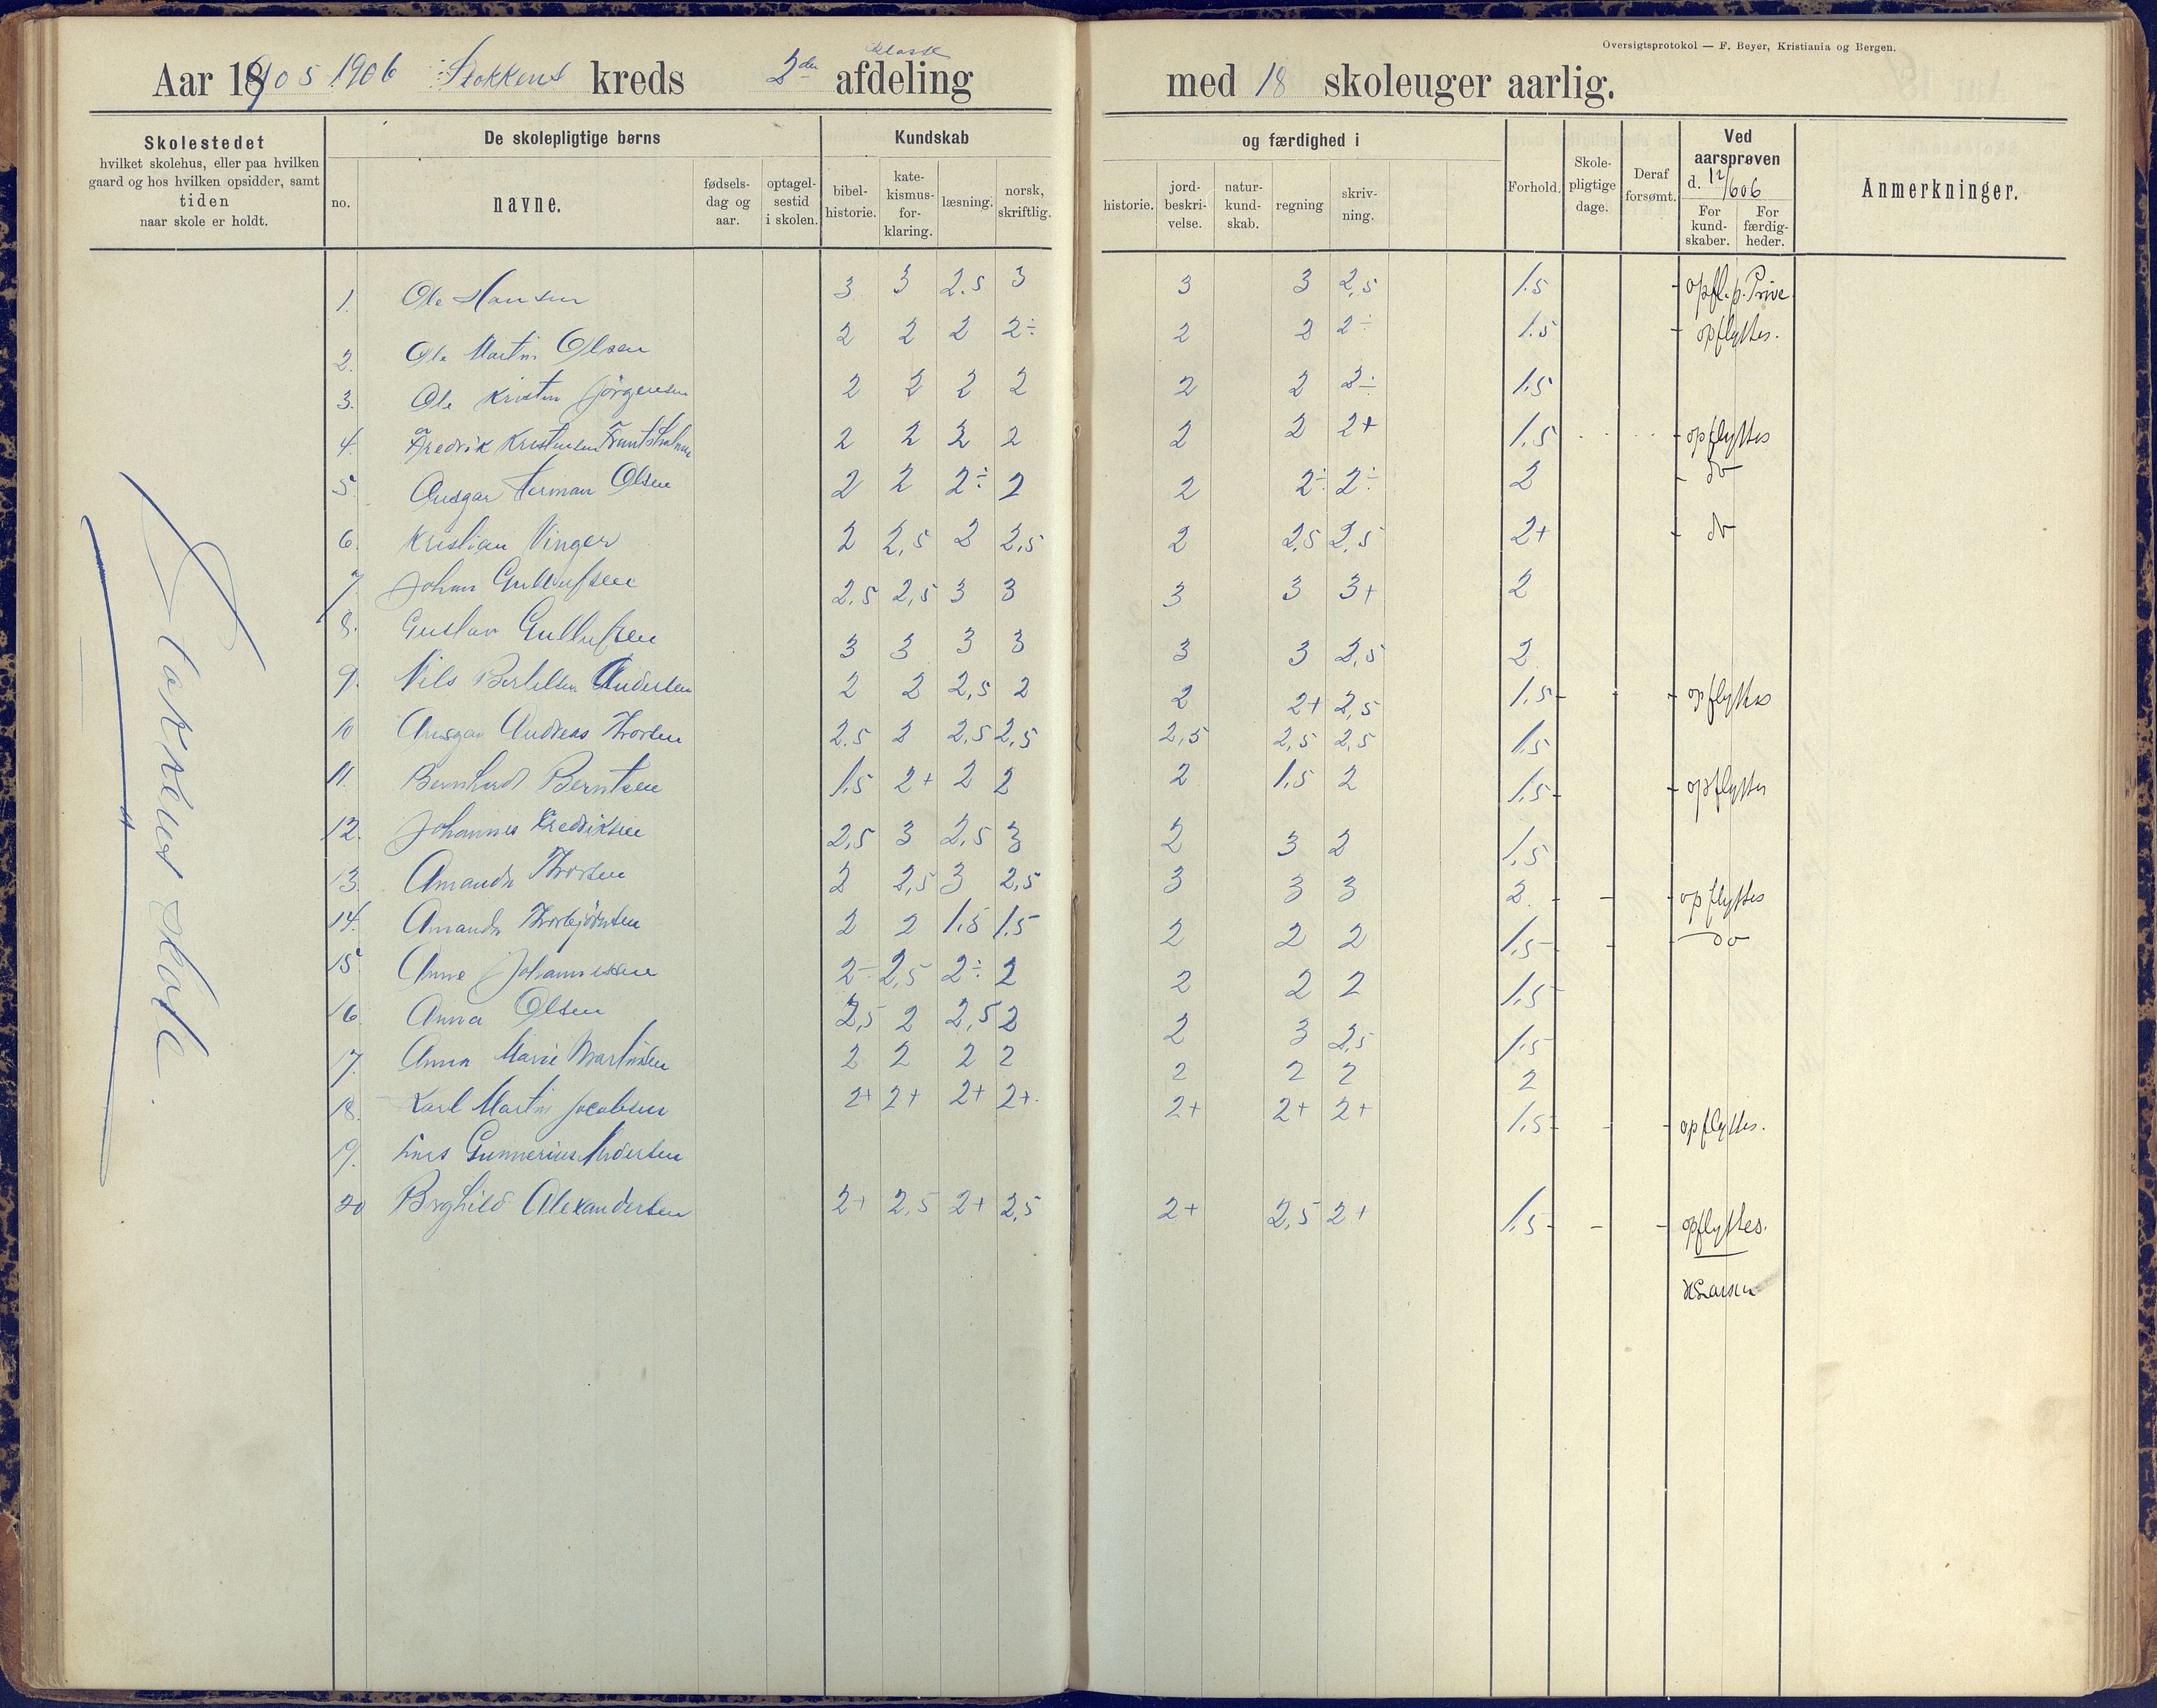 Oversigtsprotokol — F. Beyer, Kristiania og Bergen.
Aar 1905 1906 Stokkens kreds 2den klasse afdeling med 18 skoleuger aarlig.
Skolestedet
hvilket skolehus, eller paa hvilken
gaard og hos hvilken opsidder, samt
tiden
naar skole er holdt.
De skolepligtige børns
no.
navne.
fødsels-
dag og
aar.
optagel-
sestid
i skolen.
Kundskab
bibel-
historie.
kate-
kismus-
for-
klaring.
læsning.
norsk,
skriftlig.
og færdighed i
historie.
jord-
beskri-
velse.
natur-
kund-
skab.
regning
skriv-
ning.
Forhold.
Skole-
pligtige
dage.
Deraf
forsømt.
Ved
aarsprøven
d. 12/6 06
For
kund-
skaber.
For
færdig-
heder.
Anmerkninger.
Stokkens skole.
1. Ole Hansen 3 3 2.5 3 3 3 2,5 1.5 - opfl. p. Prøve
2. Ole Martin Olsen 2 2 2 2÷ 2 2 2÷ 1.5 - opflyttes.
3. Ole Kristin Jörgensen 2 2 2 2 2 2 2÷ 1.5
4. Fredrik Kristensen 2 2 2 2 2 2 2+ 1.5 - opflyttes
5. Ansgar Herman Olsen 2 2 2÷ 2 2 2÷ 2÷ 2 - do
6. Kristian Vinger 2 2,5 2 2,5 2 2,5 2,5 2+ - do
7 Johan Gullufsen 2.5 2,5 3 3 3 3 3+ 2
8. Gustav Gullufsen 3 3 3 3 3 3 2,5 2
9. Nils Bertilsen Andersen 2 2 2,5 2 2 2+ 2,5 1.5 - - - opflyttes
10 Ansgar Andreas Thorsen 2.5 2 2,5 2,5 2,5 2,5 2,5 1.5
11. Bernhard Berntsen 1.5 2+ 2 2 2 1.5 2 1.5 - - opflyttes
12. Johannes Fredriksen 2,5 3 2,5 3 2 3 2 1.5
13. Amanda Thorsen 2 2,5 3 2,5 3 3 3 2. - - - opflyttes
14. Amanda Thorbjörnsen 2 2 1.5 1.5 2 2 2 1.5 - - - do
15 Anne Johannesen 2÷ 2,5 2÷ 2 2 2 2 1.5
16. Anna Olsen 2,5 2 2,5 2 2 3 2,5 1.5
17. Anna Marie Martinsen 2 2 2 2 2 2 2 2
18. Karl Martin Jacobsen 2+ 2+ 2+ 2+ 2+ 2+ 2+ 1.5 - - opflyttes.
19. Lars Gunnerius Andersen
20 Borghild Alexandersen 2+ 2,5 2+ 2,5 2+ 2,5 2+ 1.5 - - - opflyttes.
HLarsen